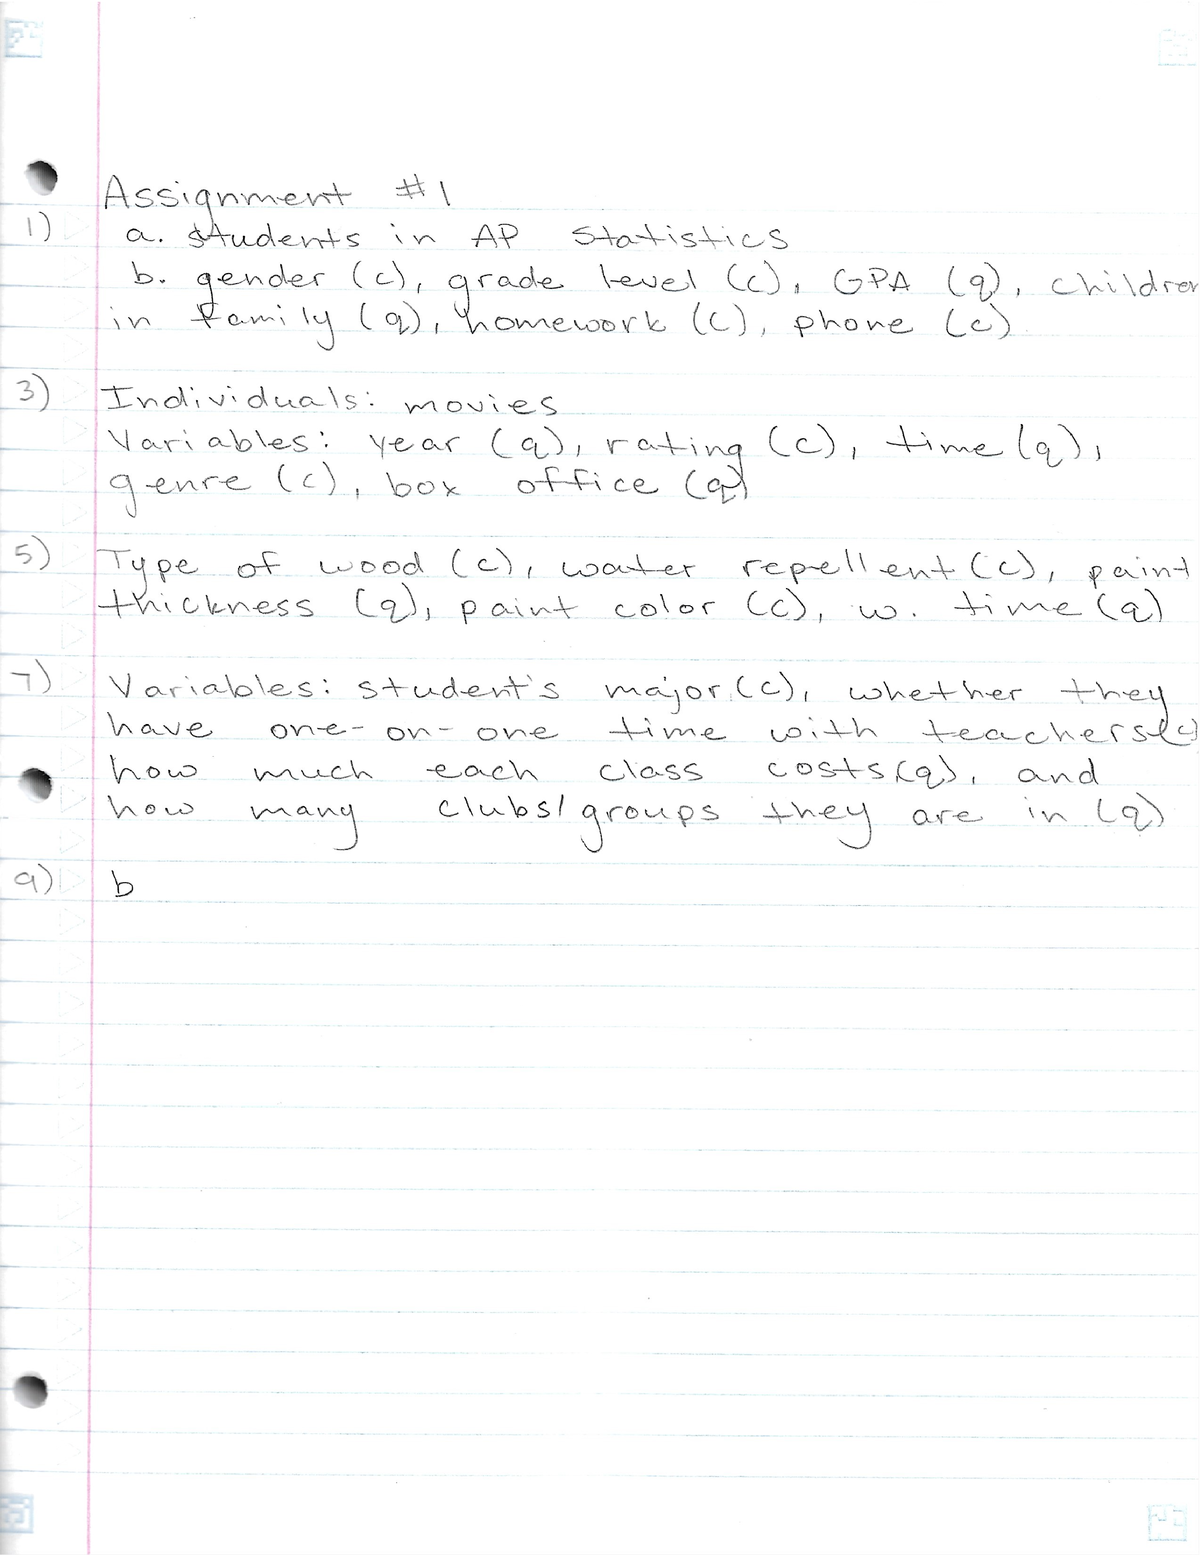 Assignment #1
1) a. students in AP Statistics
b. gender (c), grade level (c), GPA (q), children
in family (q), homework (c), phone (c)
3) Individuals: movies
Variables: year (q), rating (c), time (q),
genre (c), box office (q)
5) Type of wood (c), water repellent (c), paint
thickness (q), paint color (c), w. time (q)
7) Variables: student's major (c), whether they
have one-on-one time with teachers (c)
how much each class costs (q), and
how many clubs/groups they are in (q)
9) b